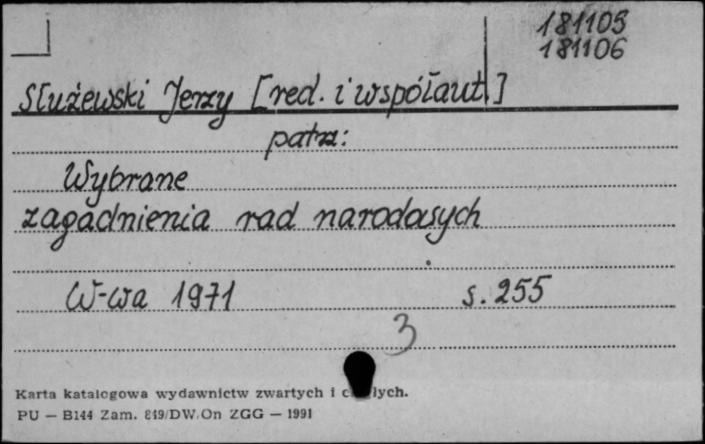 181105
181106
Służewski Jerzy [red. i współaut.]
patrz:
Wybrane
zagadnienia rad narodasych
W-wa 1971 s. 255
3
Karta katalogowa wydawnictw zwartych i c lych.
PU — B144 Zam. 819/DW/On ZGG — 1991